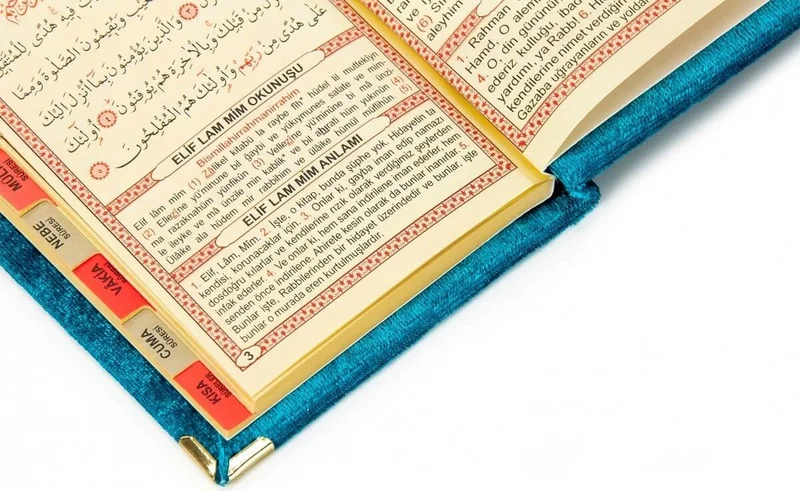 هُدًى لِلْمُتَّقِينَ
وَيُقِيمُونَ الصَّلٰوةَ وَمِمَّا
وَالَّذِينَ يُؤْمِنُونَ بِمَا اُنْزِلَ اِلَيْكَ
مِنْ قَبْلِكَ وَبِالْاٰخِرَةِ هُمْ يُوقِنُونَ ۝ اُولٰٓئِكَ
عَلٰى هُدًى مِنْ رَبِّهِمْ وَاُولٰٓئِكَ هُمُ الْمُفْلِحُونَ
ELİF LAM MİM OKUNUŞU
Bismillahirrahmanirrahim
Elif lâm mîm (1) Zâlikel kitabü la raybe fîh* hüdel lil müttekîyn
(2) Ellezîne yü'minune bil ğaybi ve yükıymunes salate ve mim
ma razaknahüm yünfikûn (3) Vellezîne yü'minune bi mâ ünzi-
le ileyke ve mâ ünzile min kablik* ve bil ahırati hüm yükınûn (4)
Ülâike ala hüdem mir rabbihim ve ülâike hümül müflihûn (5)
ELİF LAM MİM ANLAMI
1. Elif, Lâm, Mîm. 2. İşte, o kitap, bunda şüphe yok. Hidayetin ta
kendisi, korunacaklar için. 3. Onlar ki, gayba iman edip namazı
dosdoğru kılarlar ve kendilerine rızık olarak verdiğimiz şeylerden
infak ederler. 4. Ve onlar ki, hem sana indirilene iman ederler, hem
senden önce indirilene. Ahirete kesin olarak da bunlar inanırlar. 5.
Bunlar işte, Rabbilerinden bir hidayet üzerindedir ve bunlar, işte
bunlar o murada eren kurtulmuşlardır.
3
NEBE
SÛRESİ
VÂKIA
CUMA
SÛRESİ
KISA
SÛRELER
(6)
aleyhim
1.
Rahman
Hamd, O alemin
4. O, din gününün
ederiz kulluğu,
yardımı, ya Rabbi 6.
kendilerine nimet verdiğin
Gazaba uğrayanların ve yoldan